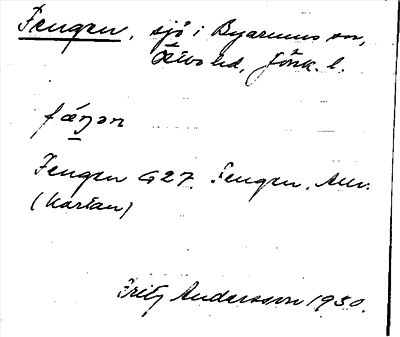 Fengen, sjö i Byarums sn,
Östbo hd, Jönk. l.
fæŋən
Fengen G27. Fengen,
(Kartan)
Fritz Andersson 1930.